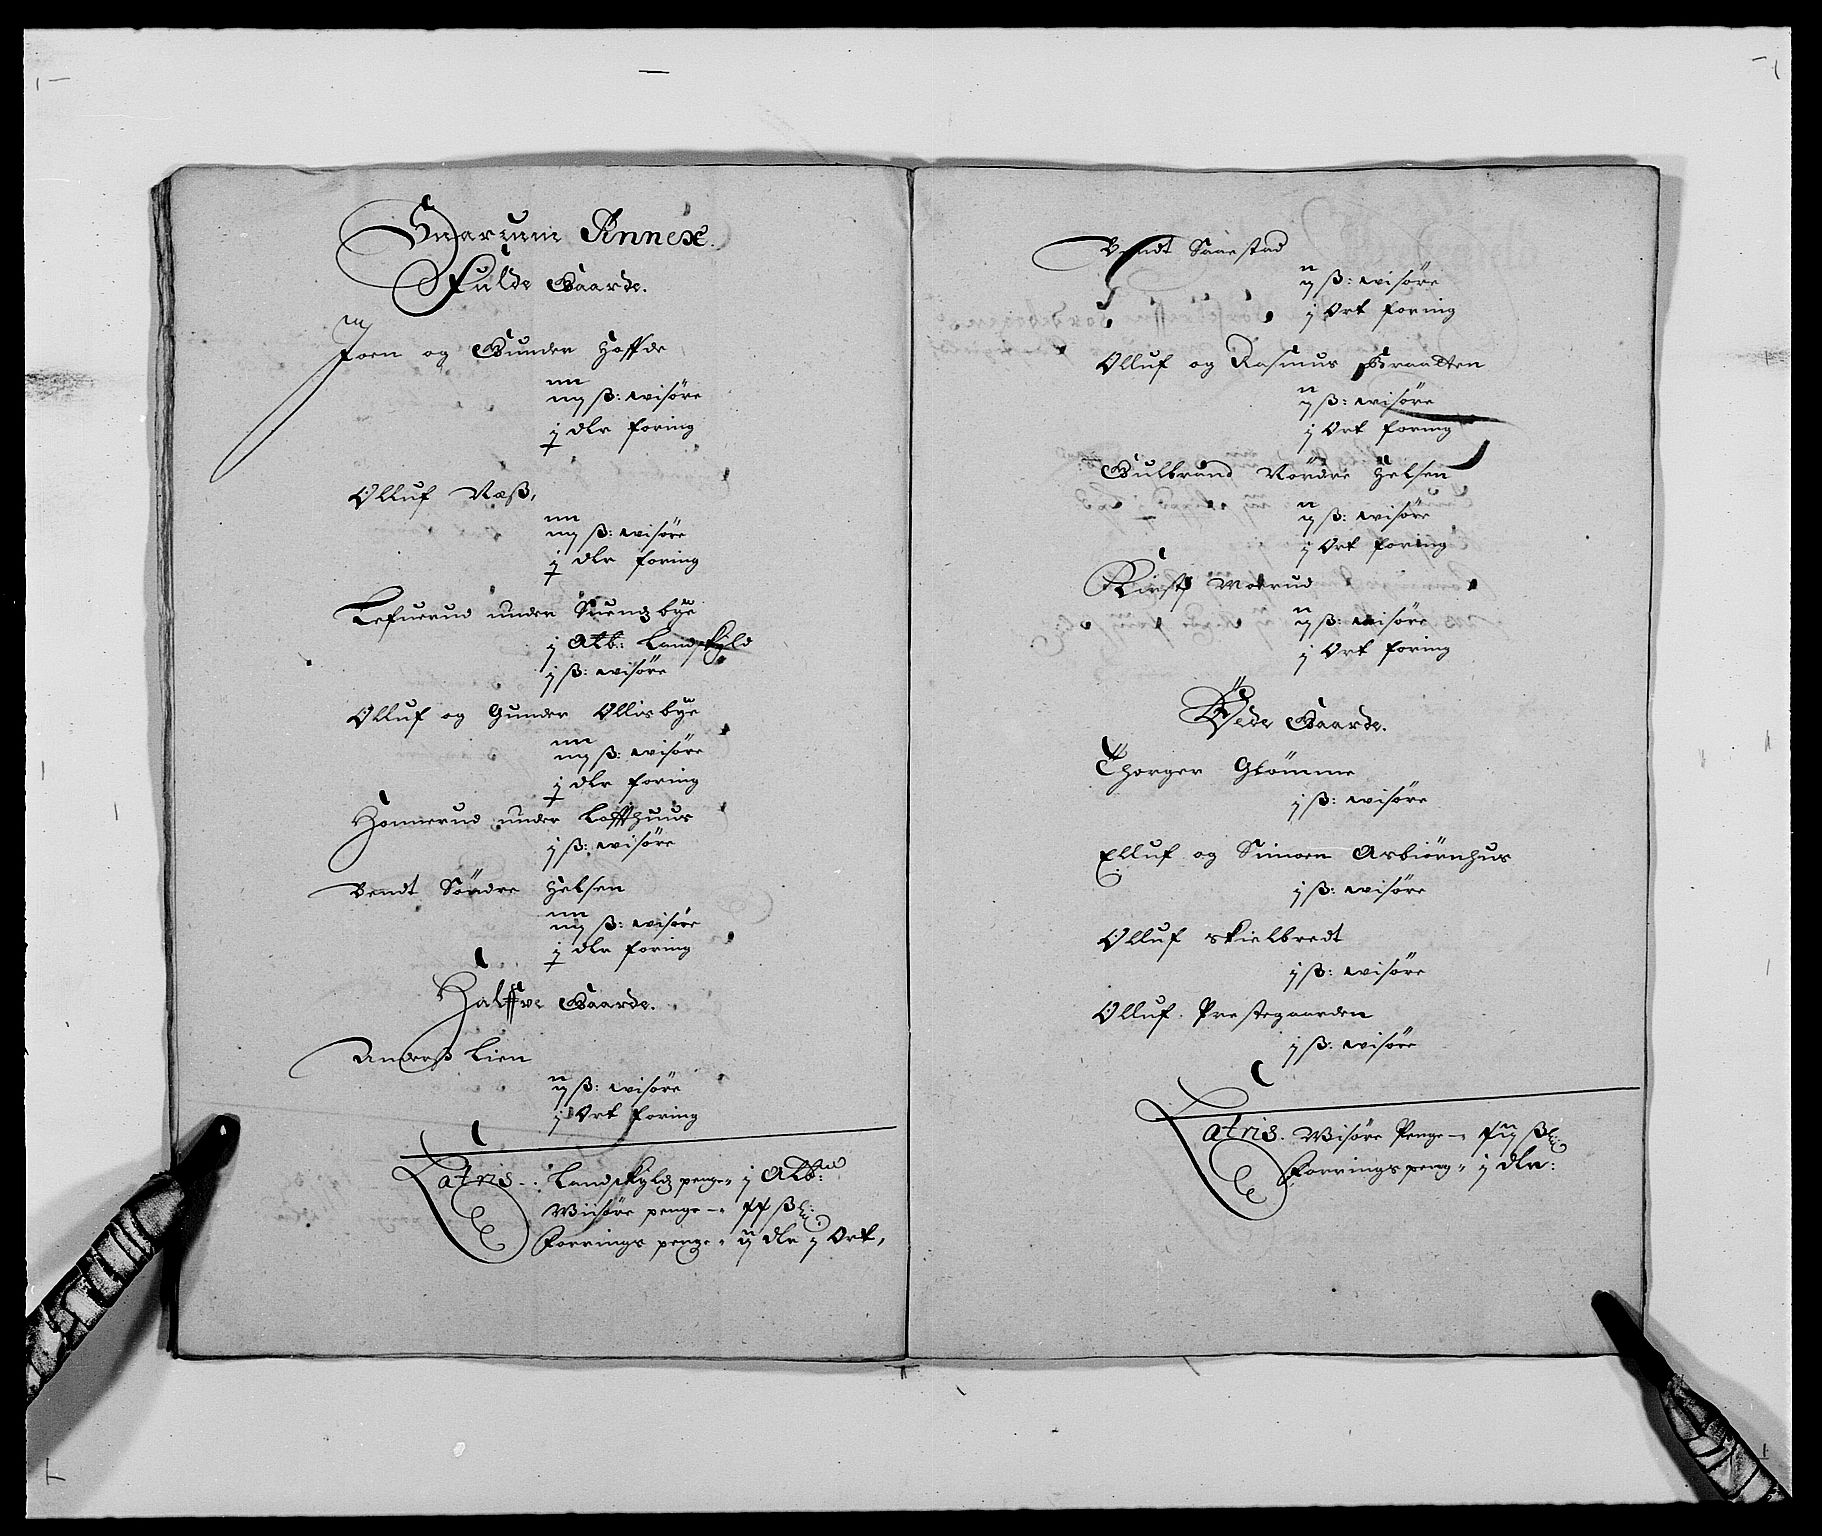 Suarum Annex.
Fulde Gaarde.
Joen og Gunder Hoffde
iiij ß: wisöre
j dlr foring
Olluf Næß,
iiij ß: wisöre
j dlr foring
under Suendzbye
j Alb: Landskyld
j ß: wisöre
Olluf og Gunder Ollisbye
iiij ß: wisöre
j dlr foring
Honnerud under Loffthuus
j ß: wisöre
Bendt Söndre Helsen
iiij ß: wisöre
j dlr foring
Halffve Gaarde.
Anderß Lien
ij ß: wisöre
j Ort foring
Latris: Landskyldz penge j Alb:
Wiisöre penge xx ß
Forrings penge ij dlr j Ort,
Bendt Saaestad
ij ß: wisöre
j Ort foring
Olluf og Rasmus Braatten
ij ß: wisöre
j Ort foring
Gulbrand Nördre Helsen
ij ß: wisöre
j Ort foring
Kirst Moerud
ij ß: wisöre
j Ort foring
Öede Gaarde.
Thorger Glömme
j ß: wisöre
Elluf og Simoen Asbiörnhus
j ß: wisöre
Olluf skielbredt
j ß: wisöre
Olluf Prestegaarden
j ß: wisöre
Latris. Wisöre Penge xij ß
Forrings peng j dlr: